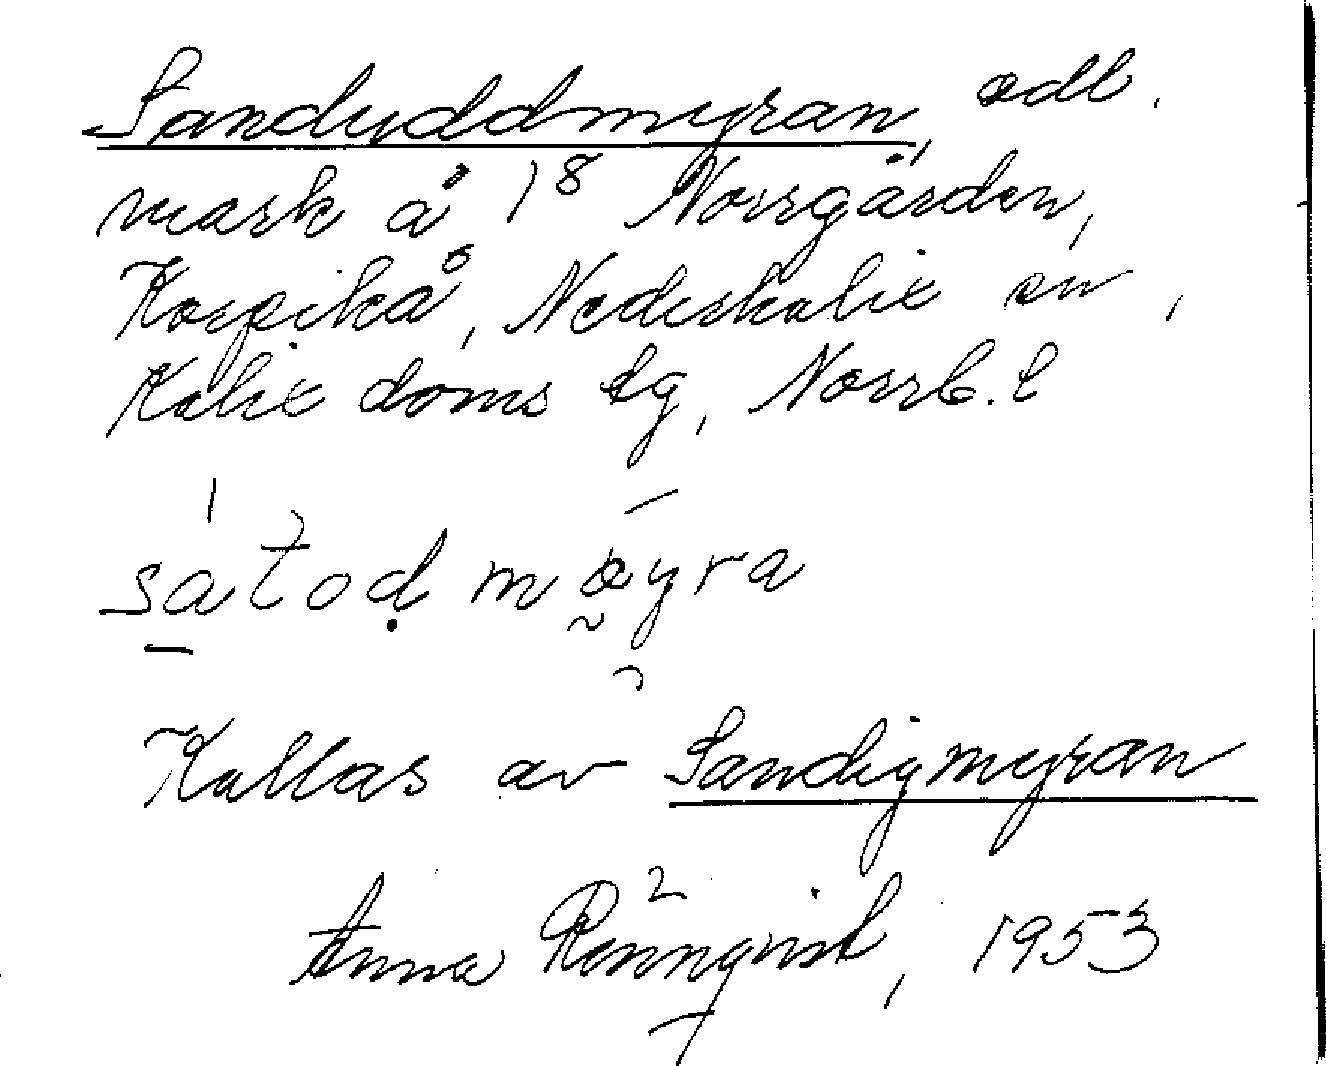 Sanduddmyran, odl.
mark å 1⁸ Norrgården,
Korpikå, Nederkalix sn,
Kalix doms lg, Norrb. l
Kallas av Sandigmyran
Anna Rönnqvist, 1953